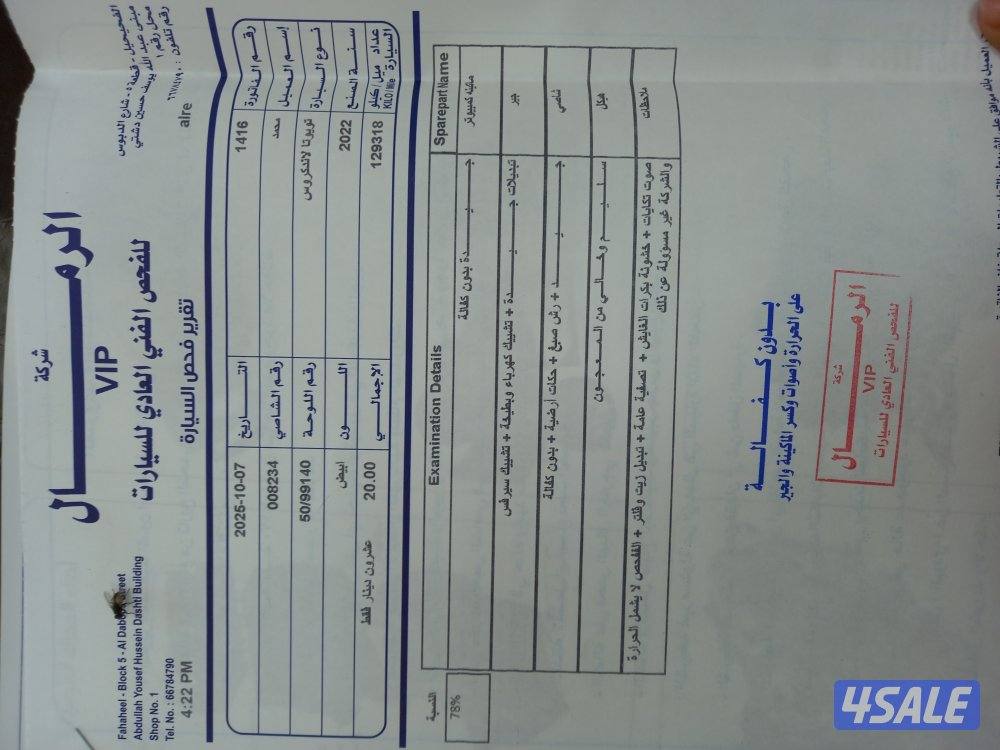 شركة
الرمـــــال
VIP
للفحص الفني العادي للسيارات
تقرير فحص السيارة
الفحيحيل - قطعة ٥ - شارع الدبوس
مبنى عبد الله يوسف حسين دشتي
محل رقم ١
رقم تلفون : ٦٦٧٨٤٧٩٠
alre
Fahaheel - Block 5 - Al Dabous Street
Abdullah Yousef Hussein Dashti Building
Shop No. 1
Tel. No. : 66784790
4:22 PM
رقم الفاتورة 1416 التاريخ 2025-10-07
إسم العميل محمد رقم الشاصي 008234
نوع السيارة تويوتا لاندكروس رقم اللوحة 50/99140
سنة الصنع 2022 اللـــون ابيض
عداد ميل/كيلو السيارة KILO/Mile 129318 الإجمالي 20.00 عشرون دينار فقط
Sparepart Name Examination Details النسبة
ماكينه كمبيوتر جـــــيـــــدة بدون كفالة 78%
جير تبديلات جـــيـــدة + تشييك كهرباء وبطيحة + تشييك سيرفس
شاصي جـــــيـــــد + رش صبغ + حكات أرضية + بدون كفالة
هيكل ســـلـــيـــم وخـــالـــي من الـــمـــعـــجـــون
ملاحظات صوت تكايات + خشونة بكرات القايش + تصفية عامة + تبديل زيت وفلتر + الفحص لا يشمل الحرارة
والشركة غير مسؤولة عن ذلك
بـــدون كـــفـــالـــة
على الحرارة وأصوات وكسر الماكينة والجير
شركة
الرمـــــال
VIP
للفحص الفني العادي للسيارات
4SALE